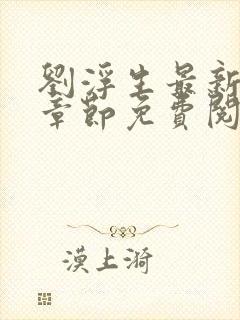 劉浮生最新
章節免費閱
漠上漪